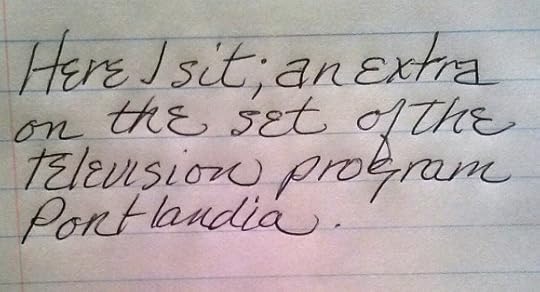 Here I sit; an extra
on the set of the
television program
Portlandia.